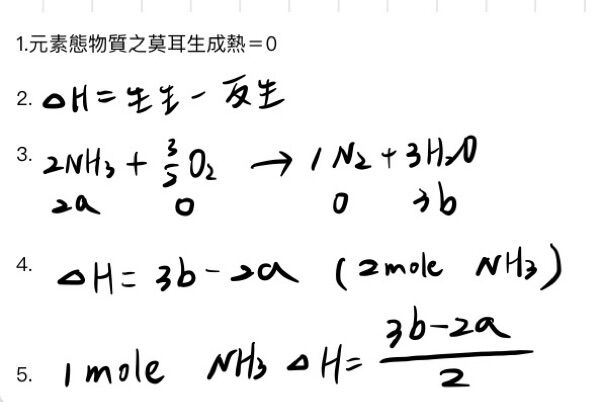 1.元素態物質之莫耳生成熱＝0
2. △H = 生生 - 反生
3. 2NH₃ + 3/5 O₂ → 1N₂ + 3H₂O
2a 0 0 3b
4. △H = 3b - 2a (2mole NH₃)
5. 1mole NH₃ △H = (3b-2a)/2